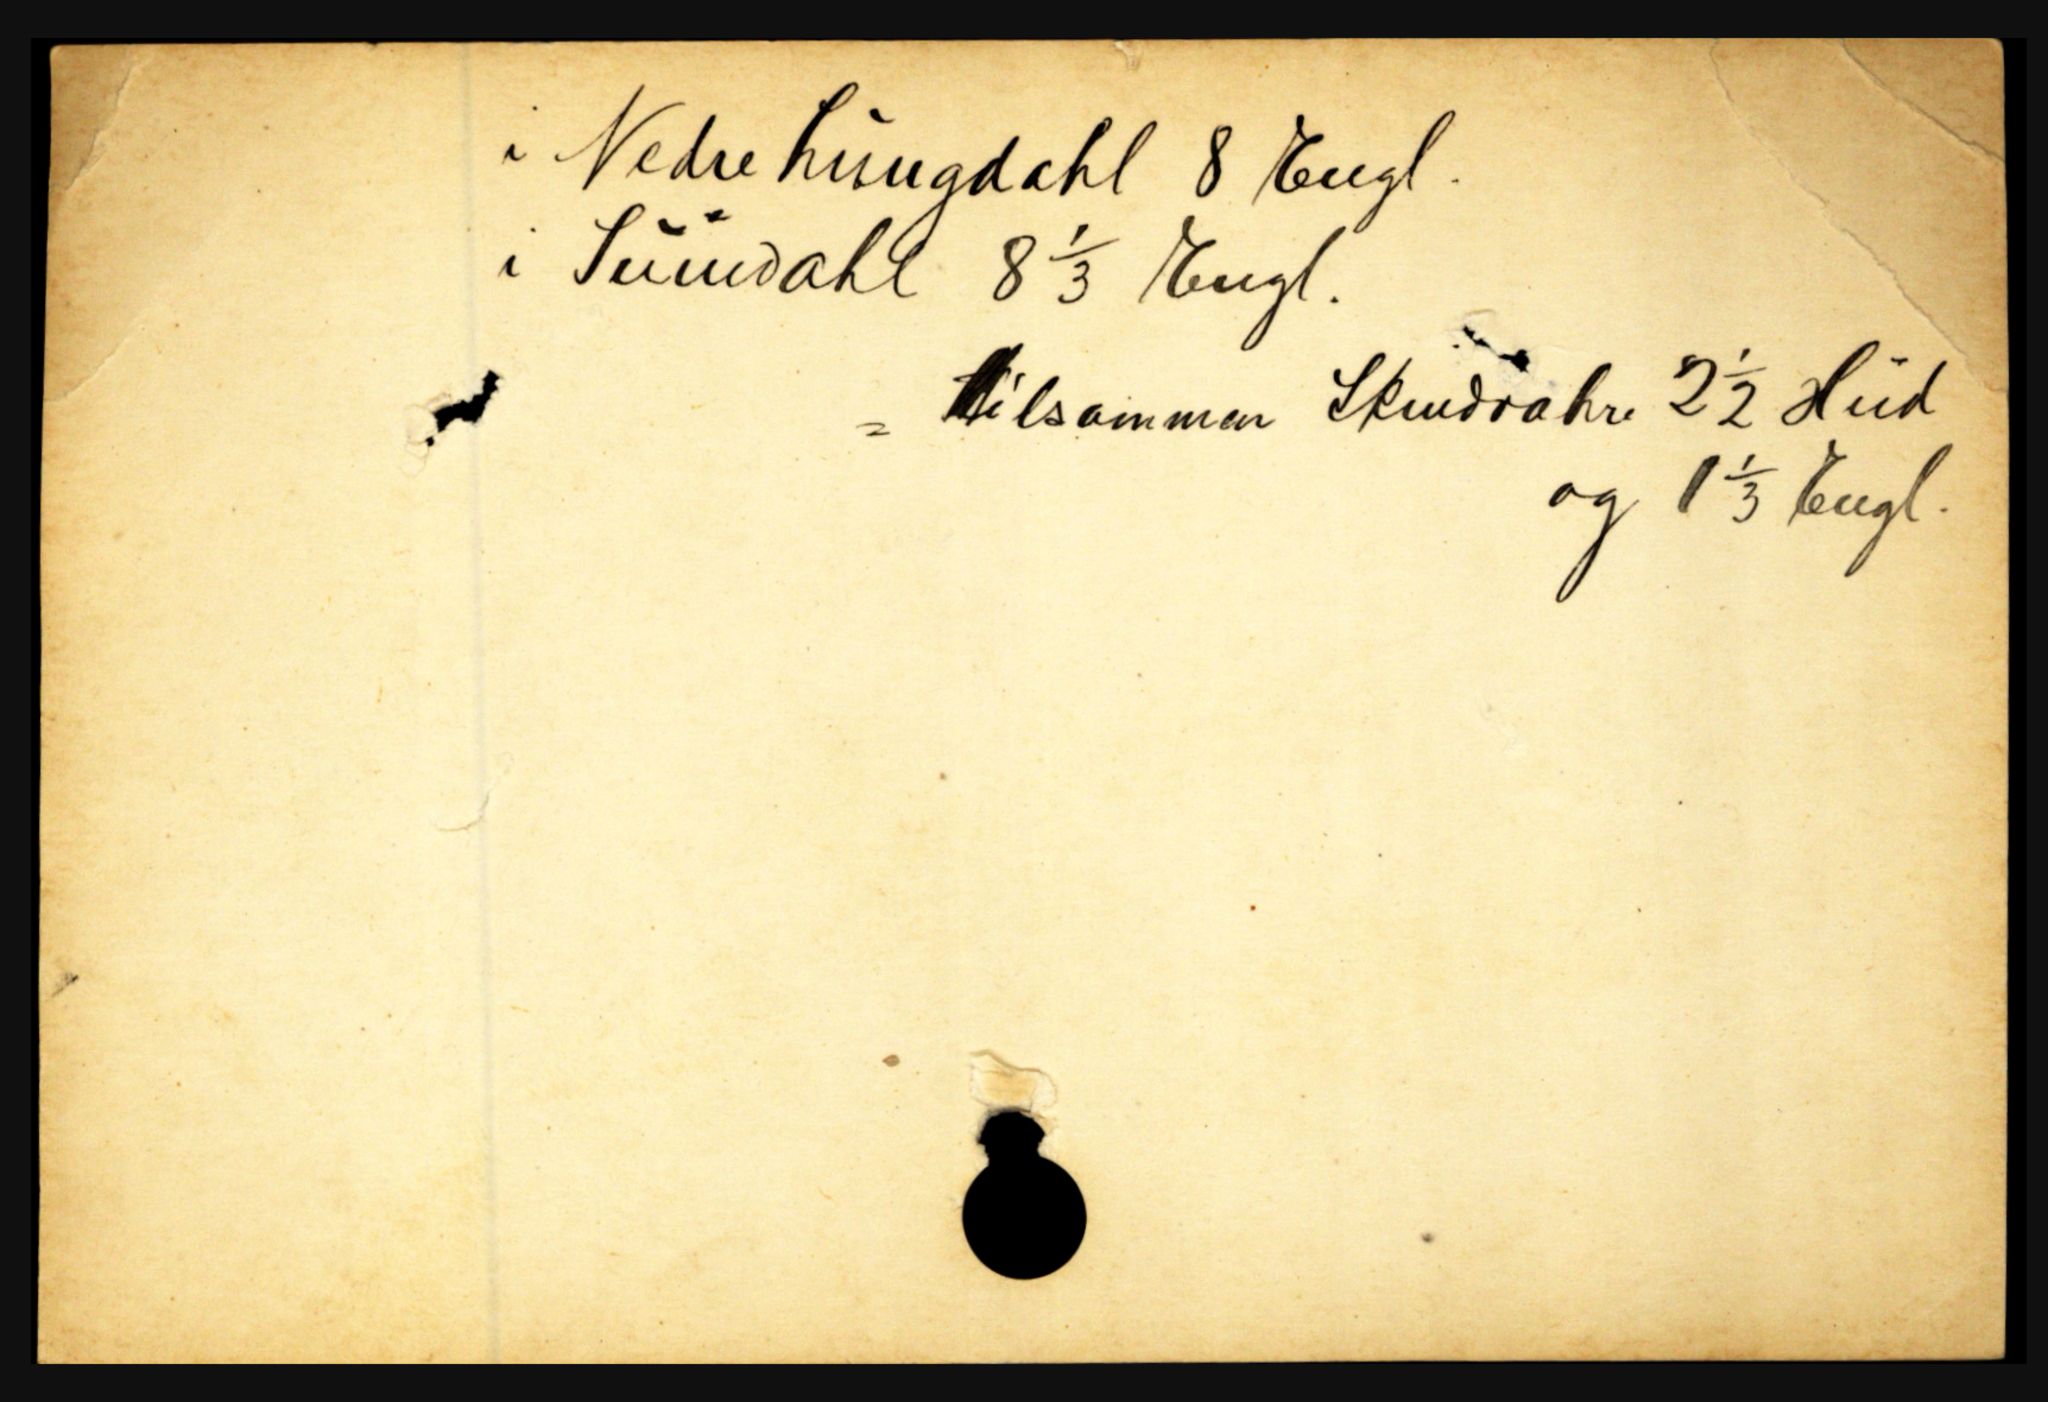 i Nedre Liungdahl 8 Engl.
i Suindahl 8 1/3 Engl.
= tilsammen Skindvahre 2 1/2 Hud
og 1 1/3 Engl.